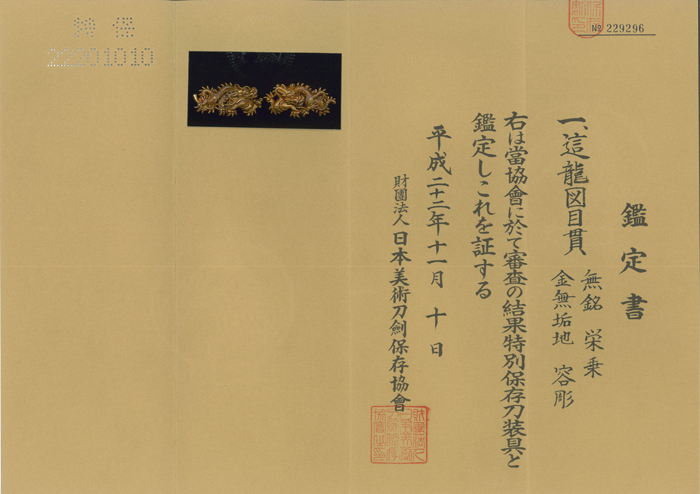 鑑定書
一、這龍図目貫
無銘 栄乗
金無垢地 容彫
右は當協會に於て審査の結果特別保存刀装具と
鑑定しこれを証する
平成二十二年十一月 十 日
財團法人 日本美術刀劍保存協會
№ 229296
特 保
22201010